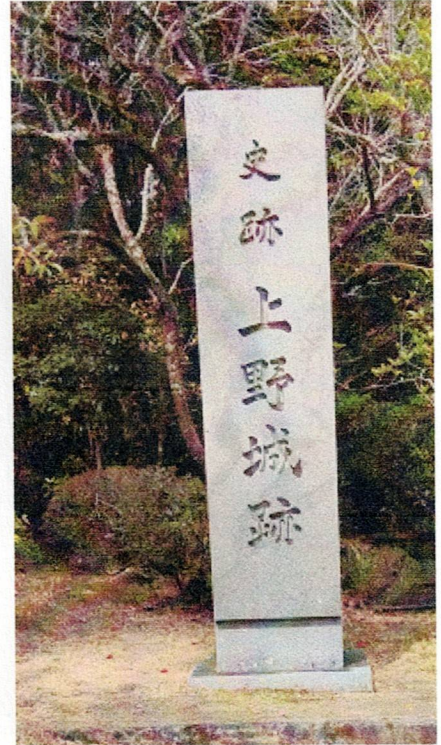 史跡 上野城跡